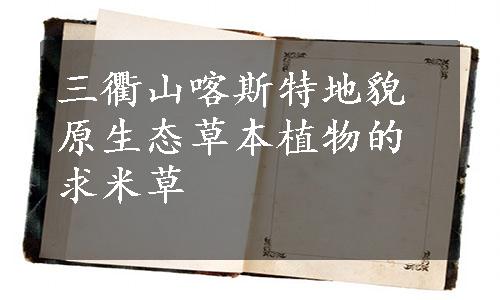 三衢山喀斯特地貌
原生态草本植物的
求米草